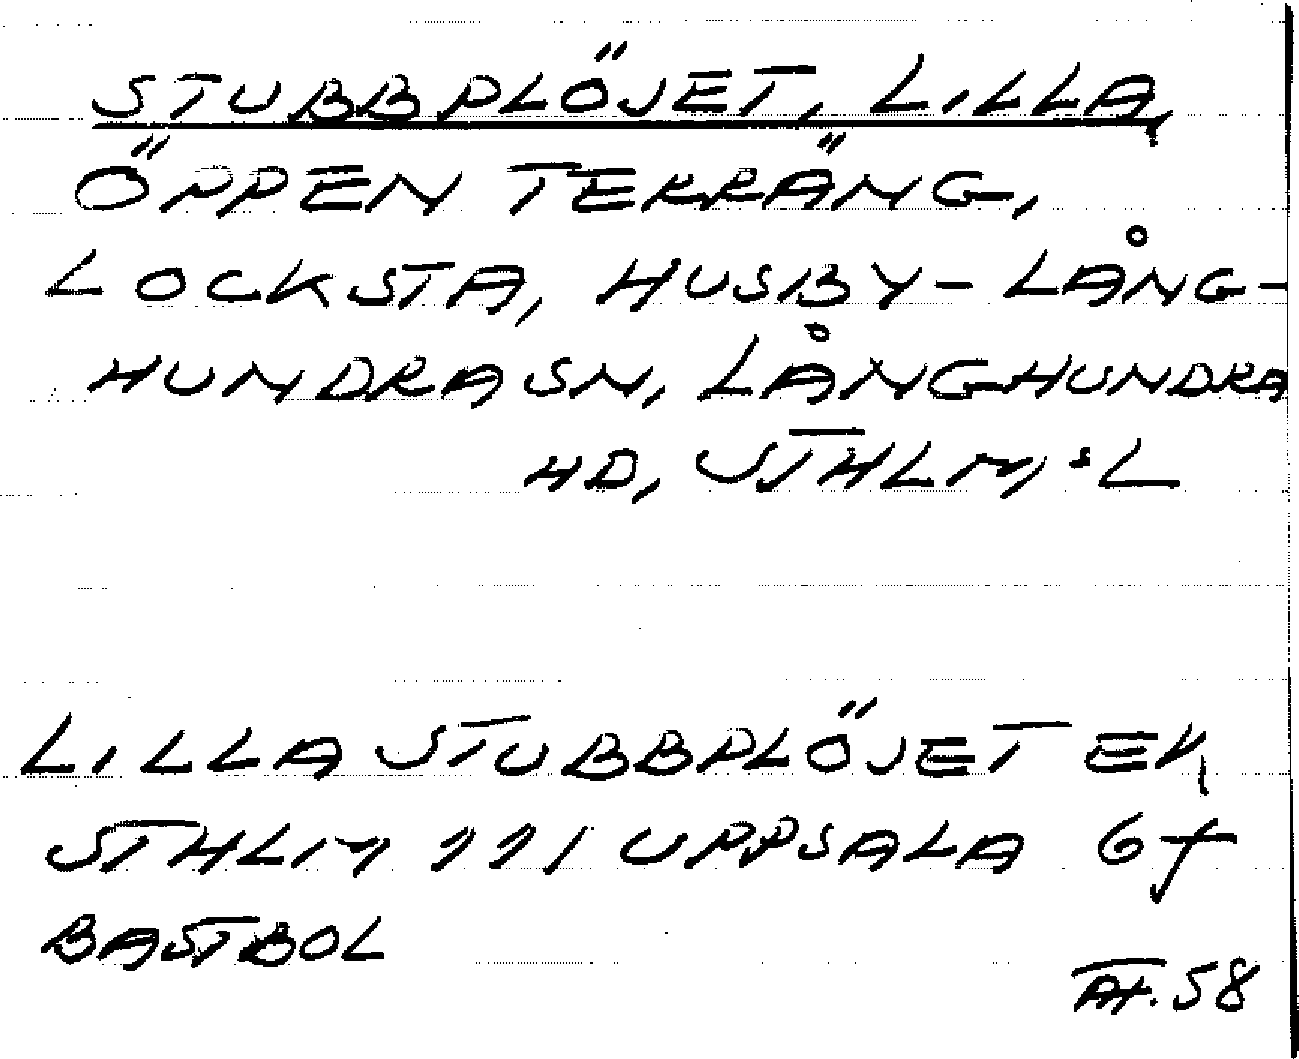 STUBBPLÖJET, LILLA,
ÖPPEN TERRÄNG,
LOCKSTA, HUSBY-LÅNG-
HUNDRA SN, LÅNGHUNDRA
HD, STHLM:s L
LILLA STUBBPLÖJET EK
STHLM 221 UPPSALA 6f
BASTBOL